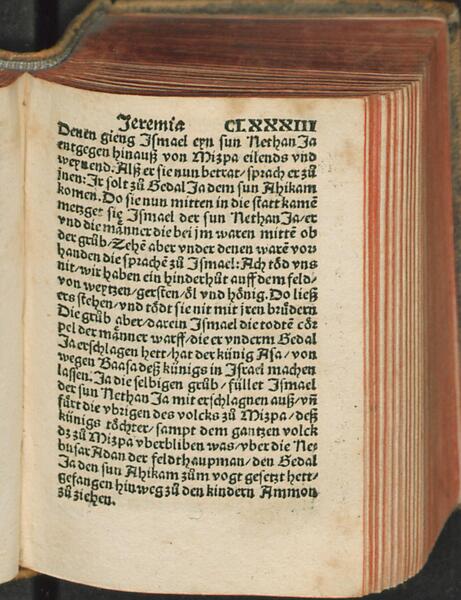 Jeremia CLXXXIII
Denen gieng Ismael eyn sun NethanJa
entgegen hinauß von Mizpa eilends vnd
weynend. Alß er sie nun betrat/sprach er zů
jnen: Jr solt zů GedalJa dem sun Ahikam
komen. Do sie nun mitten in die statt kamē
metzget sie Ismael der sun NethanJa/er
vnd die männer die bei jm waren mittē ob
der grůb/Zehē aber vnder denen warē vor
handen die sprachē zů Ismael: Ach tőd vns
nit/wir haben ein hinderhůt auff dem feld/
von weytzen/gersten/ől vnd hőnig. Do ließ
ers stehen/vnd tődt sie nit mit jren brüdern
Die grůb aber/darein Ismael die todtē cőr
pel der männer warff/die er vnderm Gedal
Ja erschlagen hett/hat der künig Asa/von
wegen Baasa deß künigs in Israel machen
lassen. Ja die selbigen grůb/füllet Ismael
der sun NethanJa mit erschlagnen auß/vñ
fürt die vbrigen des volcks zů Mizpa/deß
künigs tőchter/sampt dem gantzen volck
dz zů Mizpa vberbliben was/vber die Ne-
busarAdan der feldthauptman/den Gedal
Ja den sun Ahikam zům vogt gesetzt hett/
gefangen hinweg zů den kindern Ammon
zů ziehen.